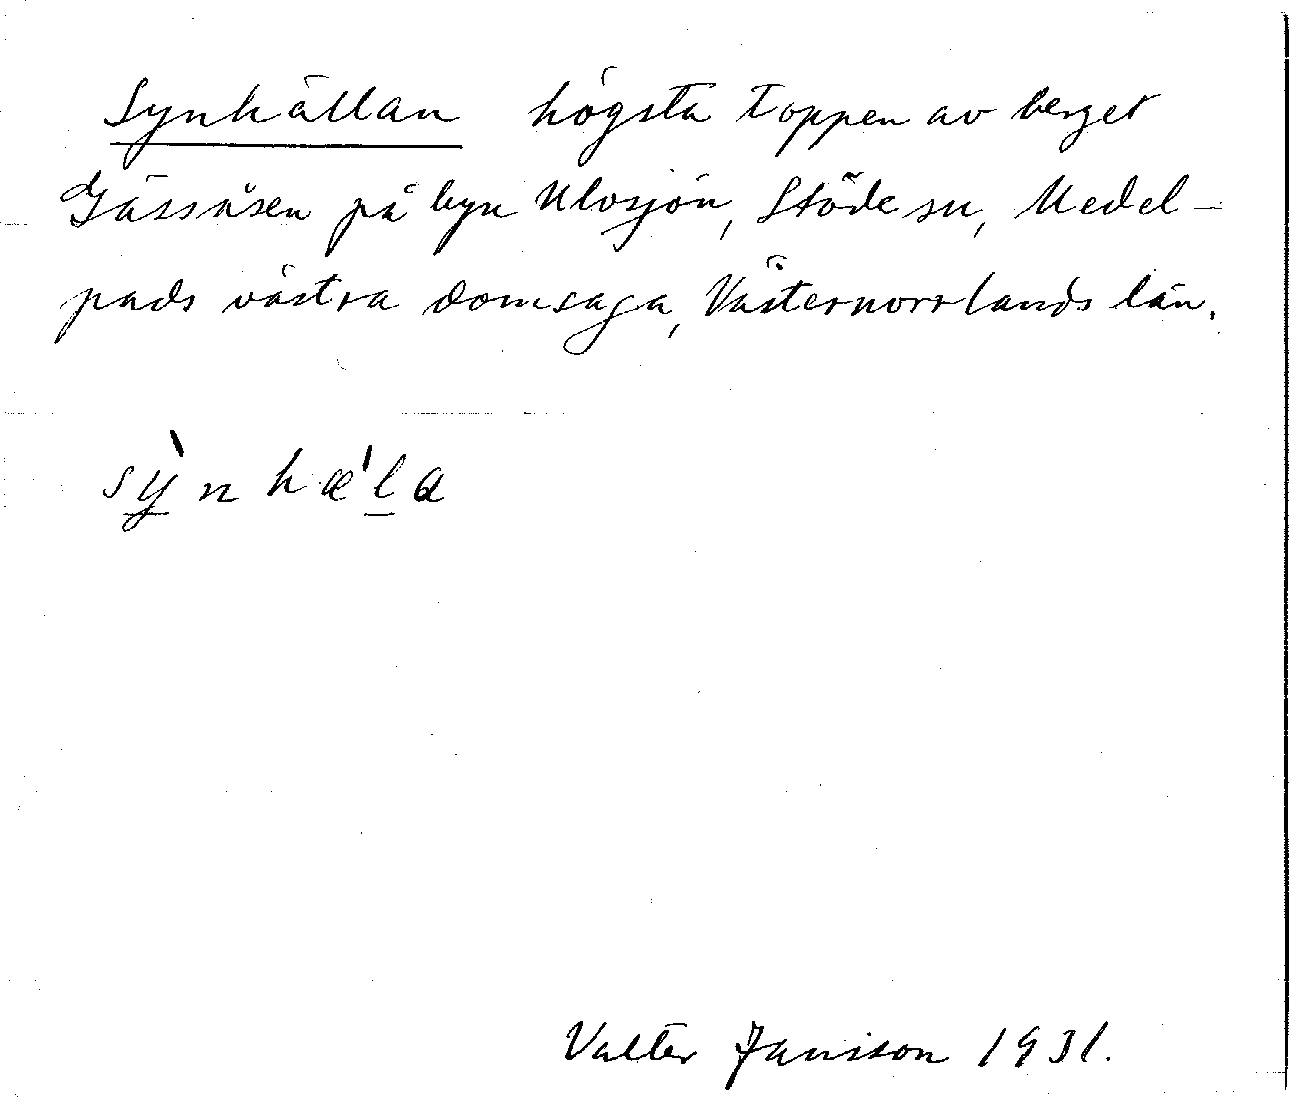 Synhällan högsta toppen av berget
Gässåsen på byn Ulvsjön, Stöde sn, Medel-
pads västra domsaga, Västernorrlands län.
sỳ̠nhæ'l̠a
Valter Jansson 1931.